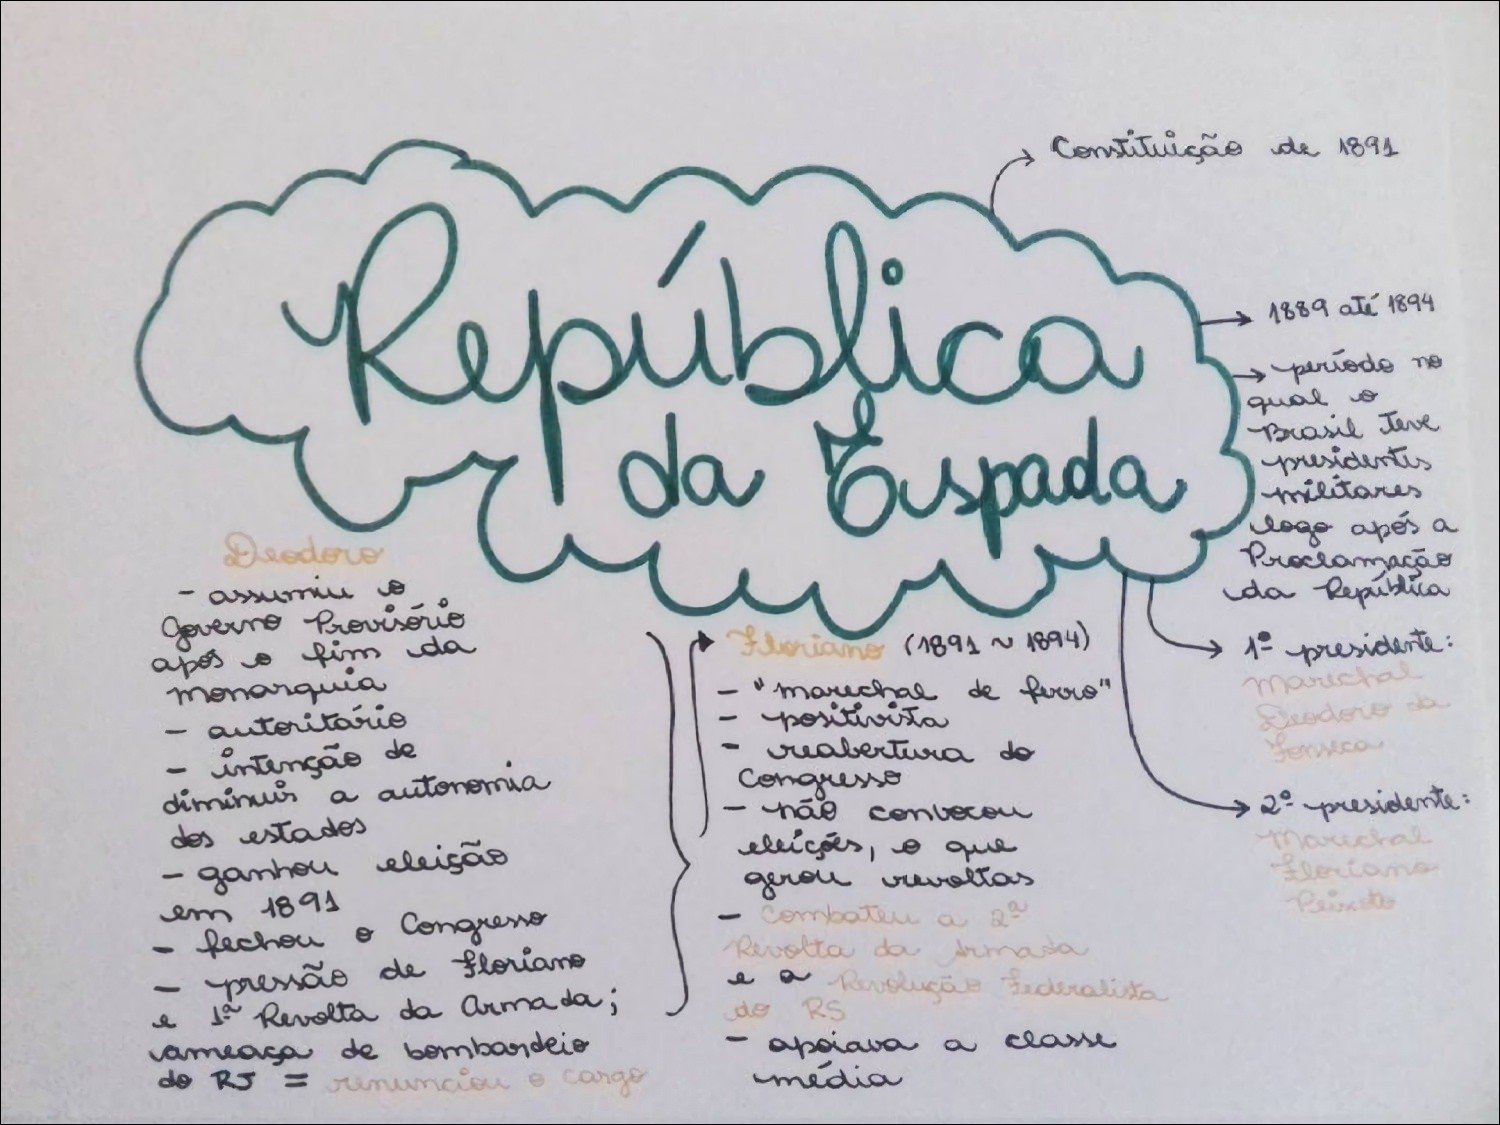 República
da Espada
Constituição de 1891
1889 até 1894
período no
qual o
Brasil teve
presidentes
militares
logo após a
Proclamação
da República
1º presidente:
Marechal
Deodoro da
Fonseca
2º presidente:
Marechal
Floriano
Peixoto
Deodoro
- assumiu o
Governo Provisório
após o fim da
monarquia
- autoritário
- intenção de
diminuir a autonomia
dos estados
- ganhou eleição
em 1891
- fechou o Congresso
- pressão de Floriano
e 1ª Revolta da Armada;
ameaça de bombardeio
do RJ = renunciou o cargo
Floriano (1891 ~ 1894)
- "marechal de ferro"
- positivista
- reabertura do
Congresso
- não convocou
eleições, o que
gerou revoltas
- Combateu a 2ª
Revolta da Armada
e a Revolução Federalista
do RS
- apoiava a classe
média